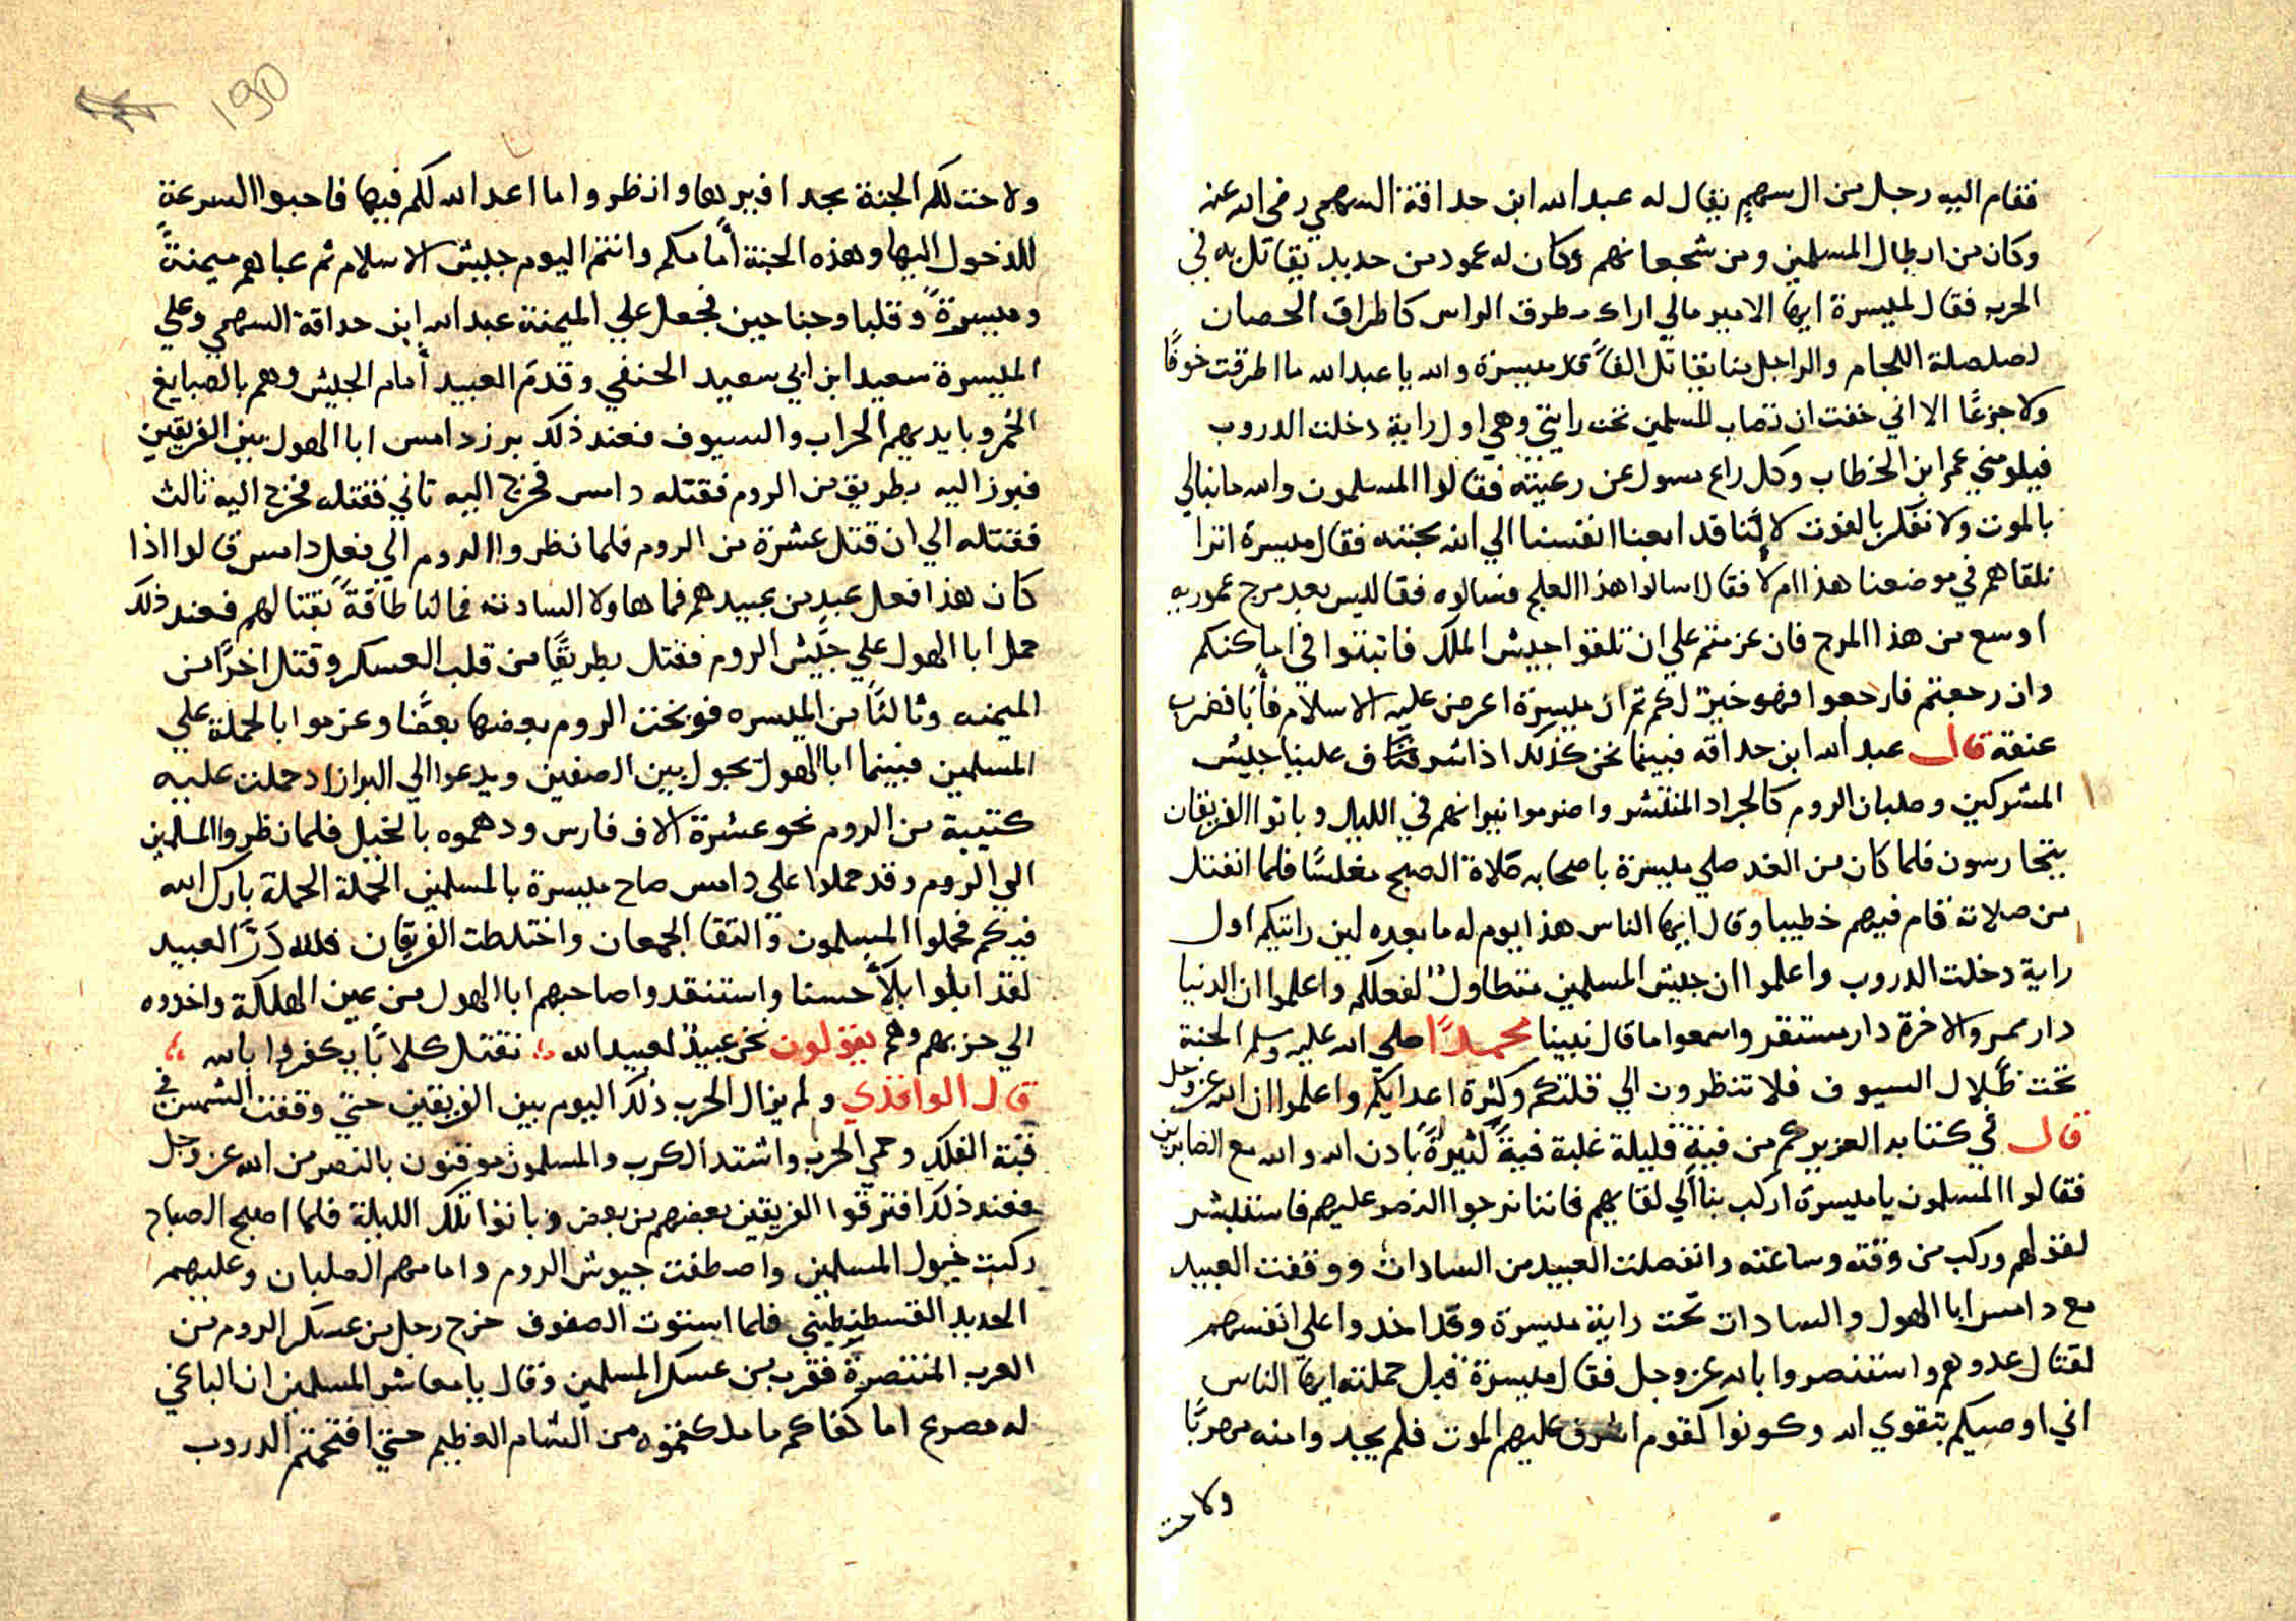 فقام اليه رجل من ال سهم يقال له عبد الله ابن حدافة السهمي رضي الله عنه
وكان من ابطال المسلمين ومن شجعانهم وكان له عمود من حديد يقاتل به في
الحرب فقال لميسرة ايها الامير مالي اراك مطرق الراس كاطراق الحصان
لصلصلة اللجام والراجل منا يقاتل الفًا قال ميسرة والله يا عبد الله ما اطرقت خوفًا
ولا جزعًا الا اني خفت ان تصاب المسلمين تحت رايتي وهي اول راية دخلت الدروب
فيلومني عمر ابن الخطاب وكل راع مسول عن رعيته فقالوا المسلمون والله ما نبالي
بالموت ولا نفكر بالفوت لاننا قد ابعنا انفسنا الي الله بجنته فقال ميسرة اترا
نلقاهم في موضعنا هذا ام لا فقال اسالوا هذا العلج فسالوه فقال ليس بعد مرج عموريه
اوسع من هذا المرج فان عزمتم علي ان تلقوا جيش الملك فاتبتوا في اماكنكم
وان رجعتم فارجعوا فهو خير لكم تم ان ميسرة اعرض عليه الاسلام فأبا فضرب
عنقه قال عبد الله ابن حداقه فبينما نحن كذلك اذ اشرف علينا جيش
المشركين وصلبان الروم كالجراد المنتشر واضرموا نيرانهم في الليل وباتوا الفريقان
يتحارسون فلما كان من الغد صلي ميسرة باصحابه صلاة الصبح مغلسًا فلما انفتل
من صلاته قام فيهم خطيبا وقال ايها الناس هذا يوم له ما بعده لين رايتكم اول
راية دخلت الدروب واعلموا ان جيش المسلمين متطاول لفعلكم واعلموا ان الدنيا
دار ممر والاخرة دار مستقر واسمعوا ما قال نبينا محمدًا صلي الله عليه وسلم الجنة
تحت ظلال السيوف فلا تنظرون الي قلتكم وكثرة اعدايكم واعلموا ان الله عز وجل
قال في كتابه العزيز كم من فية قليلة غلبة فية كثيرة بادن الله والله مع الصابرين
فقالوا المسلمون يا ميسرة اركب بنا الي لقايهم فاننا نرجوا النصر عليهم فاستبشر
لقولهم وركب من وقته وساعته وانفصلت العبيد من السادات ووقفت العبيد
مع دامس ابا الهول والسادات تحت راية ميسرة وقد اخدوا علي انفسهم
لقتال عدوهم واستنصروا بالله عز وجل فقال ميسرة قبل حملته ايها الناس
اني اوصيكم بتقوي الله وكونوا كقوم اشرف عليهم الموت فلم يجدوا منه مهربًا
ولاحت
190
ولاحت لكم الجنة بحدافيرها وانظروا ما اعد الله لكم فيها فاحبوا السرعة
للدخول اليها وهذه الجنة أمامكم وانتم اليوم جيش الاسلام ثم عباهم ميمنةً
وميسرةً وقلبا وجناحين فجعل علي الميمنة عبد الله ابن حداقة السهمي وعلي
الميسرة سعيد ابن ابي سعيد الحنفي وقدم العبيد أمام الجيش وهم بالصبايغ
الحمر وبايديهم الحراب والسيوف فعند ذلك برز دامس ابا الهول بين الفريقين
فبرز اليه بطريق من الروم فقتله دامس فخرج اليه تاني فقتله فخرج اليه ثالث
فقتله الي ان قتل عشرة من الروم فلما نظروا الروم الي فعل دامس قالوا اذا
كان هذا فعل عبد من عبيدهم فما هاولا السادته فما لنا طاقةً بقتالهم فعند ذلك
حمل ابا الهول علي جيش الروم فقتل بطريقًا من قلب العسكر وقتل اخرًا من
الميمنه وثالثًا من الميسره فوبخت الروم بعضها بعضًا وعزموا بالحملة علي
المسلمين فبينما ابا الهول يجول بين الصفين ويدعوا الي البراز اد حملت عليه
كتيبة من الروم نحو عشرة الاف فارس ودهموه بالخيل فلما نظروا المسلمين
الي الروم وقد حملوا علي دامس صاح ميسرة بالمسلمين الحملة الحملة بارك الله
فيكم فحملوا المسلمون والتقا الجمعان واختلطت الفريقان فلله درّ العبيد
لقد ابلوا بلأً حسنا واستنقدوا صاحبهم ابا الهول من عين الهلكة واخدوه
الي حزبهم وهم يقولون نحن عبيدٌ لعبيد الله نقتل كلابًا يكفروا بالله
قال الواقدي ولم يزال الحرب ذلك اليوم بين الفريقين حتي وقفت الشمس في
قبة الفلك وحمي الحرب واشتد الكرب والمسلمون موقنون بالنصر من الله عز وجل
فعند ذلك افترقوا الفريقين بعضهم من بعض وباتوا تلك الليلة فلما اصبح الصباح
ركبت خيول المسلمين واصطفت جيوش الروم وامامهم الصلبان وعليهم
الحديد القسطنطيني فلما استوت الصفوف خرج رجل من عسكر الروم من
العرب المتنصرة فقرب من عسكر المسلمين وقال يا معاشر المسلمين ان الباغي
له مصرع اما كفاكم ما ملكتموه من الشام العظيم حتي افتحتم الدروب